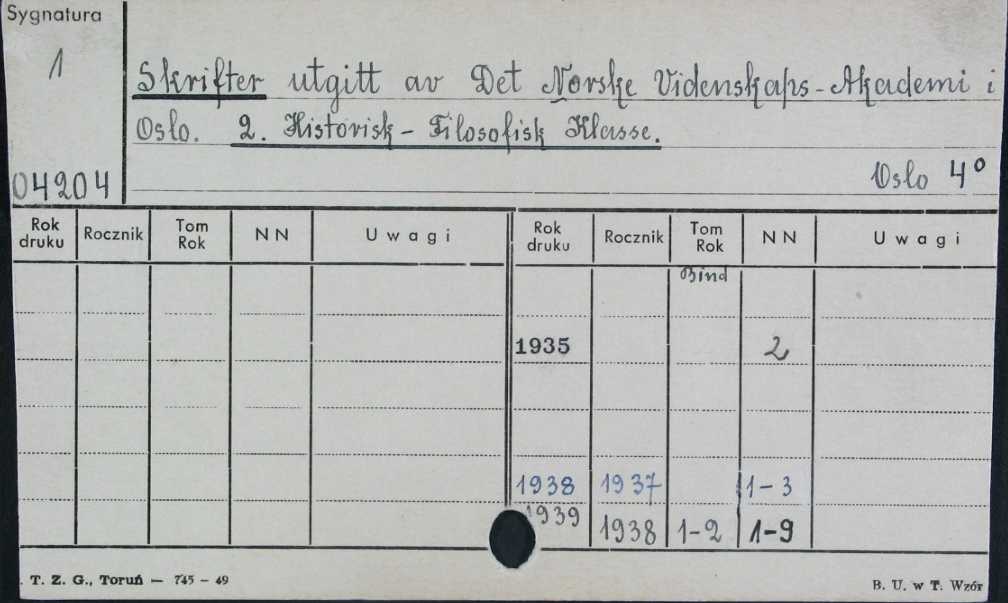 Sygnatura
1
Skrifter utgitt av Det Norske Videnskaps-Akademi i
Oslo. 2. Historisk-Filosofisk Klasse.
04204
Oslo 4°
Rok druku Rocznik Tom Rok NN Uwagi Rok druku Rocznik Tom Rok NN Uwagi
Bind
1935 2
1938 1937 1-3
1939 1938 1-2 1-9
T. Z. G., Toruń — 745 - 49
B. U. w T. Wzór